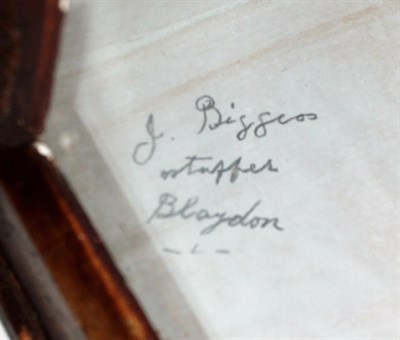 J. Biggeos
stuffer
Blaydon